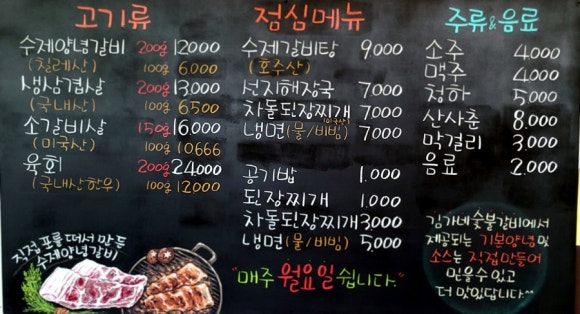 고기류
수제양념갈비 200g 12000
(칠레산) 100g 6.000
생삼겹살 200g 13,000
(국내산) 100g 6500
소갈비살 150g 16,000
(미국산) 100g 10666
육회 200g 24,000
(국내산한우) 100g 12000
직접 포를 떠서 만든
수제양념갈비
점심메뉴
수제갈비탕 9000
(호주산)
선지해장국 7000
차돌된장찌개 7000
(미국산)
냉면(물/비빔) 7000
공기밥 1.000
된장찌개 1.000
차돌된장찌개 3,000
냉면(물/비빔) 5,000
"매주 월요일 쉽니다."
주류&음료
소주 4.000
맥주 4.000
청하 5.000
산사춘 8.000
막걸리 3,000
음료 2.000
김가네숯불갈비에서
제공되는 기본양념 및
소스는 직접만들어
믿을수 있고
더 맛있답니다~^^